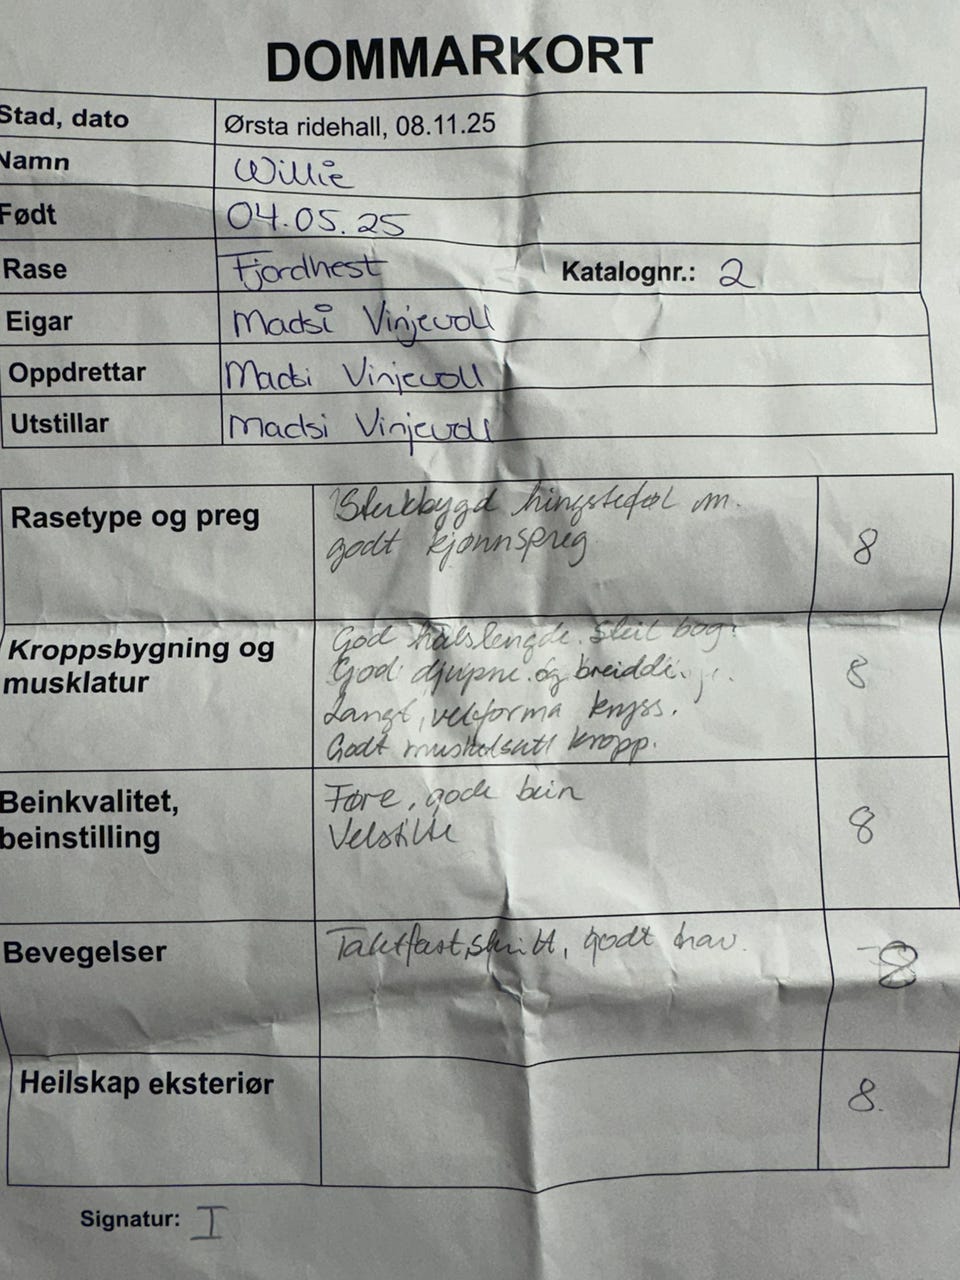 DOMMARKORT
Stad, dato Ørsta ridehall, 08.11.25
Namn Willie
Født 04.05.25
Rase Fjordhest Katalognr.: 2
Eigar Madsi Vinjevoll
Oppdrettar Madsi Vinjevoll
Utstillar Madsi Vinjevoll
Rasetype og preg
Sterkbygd hingsteføl m.
godt kjønnspreg
8
Kroppsbygning og
musklatur
God halslengde. Steil bog.
God djupne og breidde.
Langt, velforma kryss.
Godt muskelsatt kropp.
8
Beinkvalitet,
beinstilling
Tørre, gode bein
Velstilte
8
Bevegelser
Taktfast skritt, godt trav.
8
Heilskap eksteriør
8.
Signatur: I